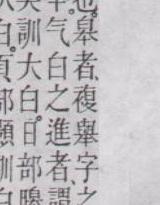 也。皋者、複舉字之
气白之進者、謂
訓大白。日部皞
白。頁部顥訓白